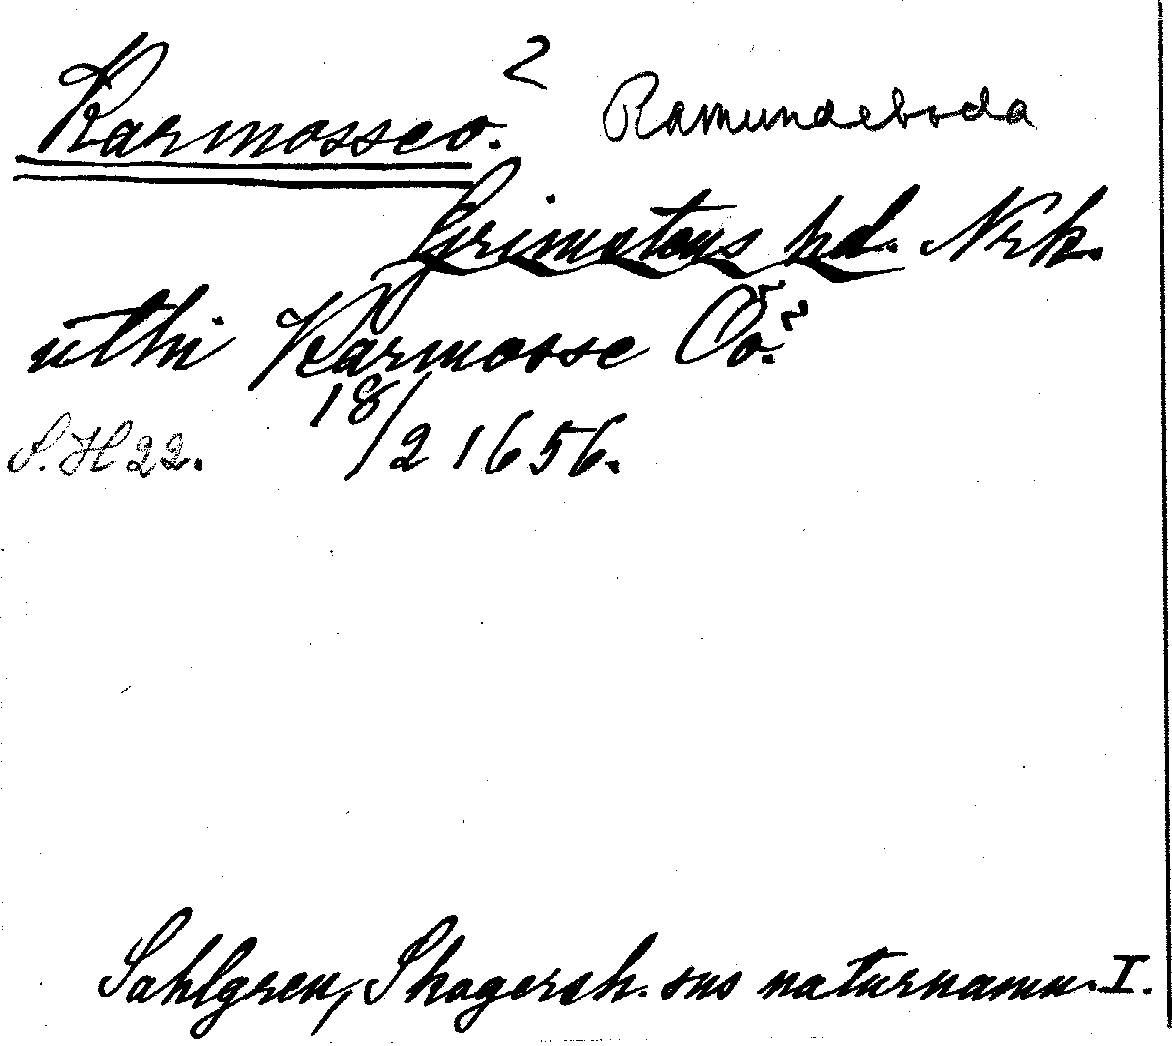 Karmosseö. 2 Ramundeboda
Grimstens hd. Nrk.
uthi Karmosse Öö.
S.H 22. 18/2 1656.
Sahlgren, Skagersh. sns naturnamn. I.